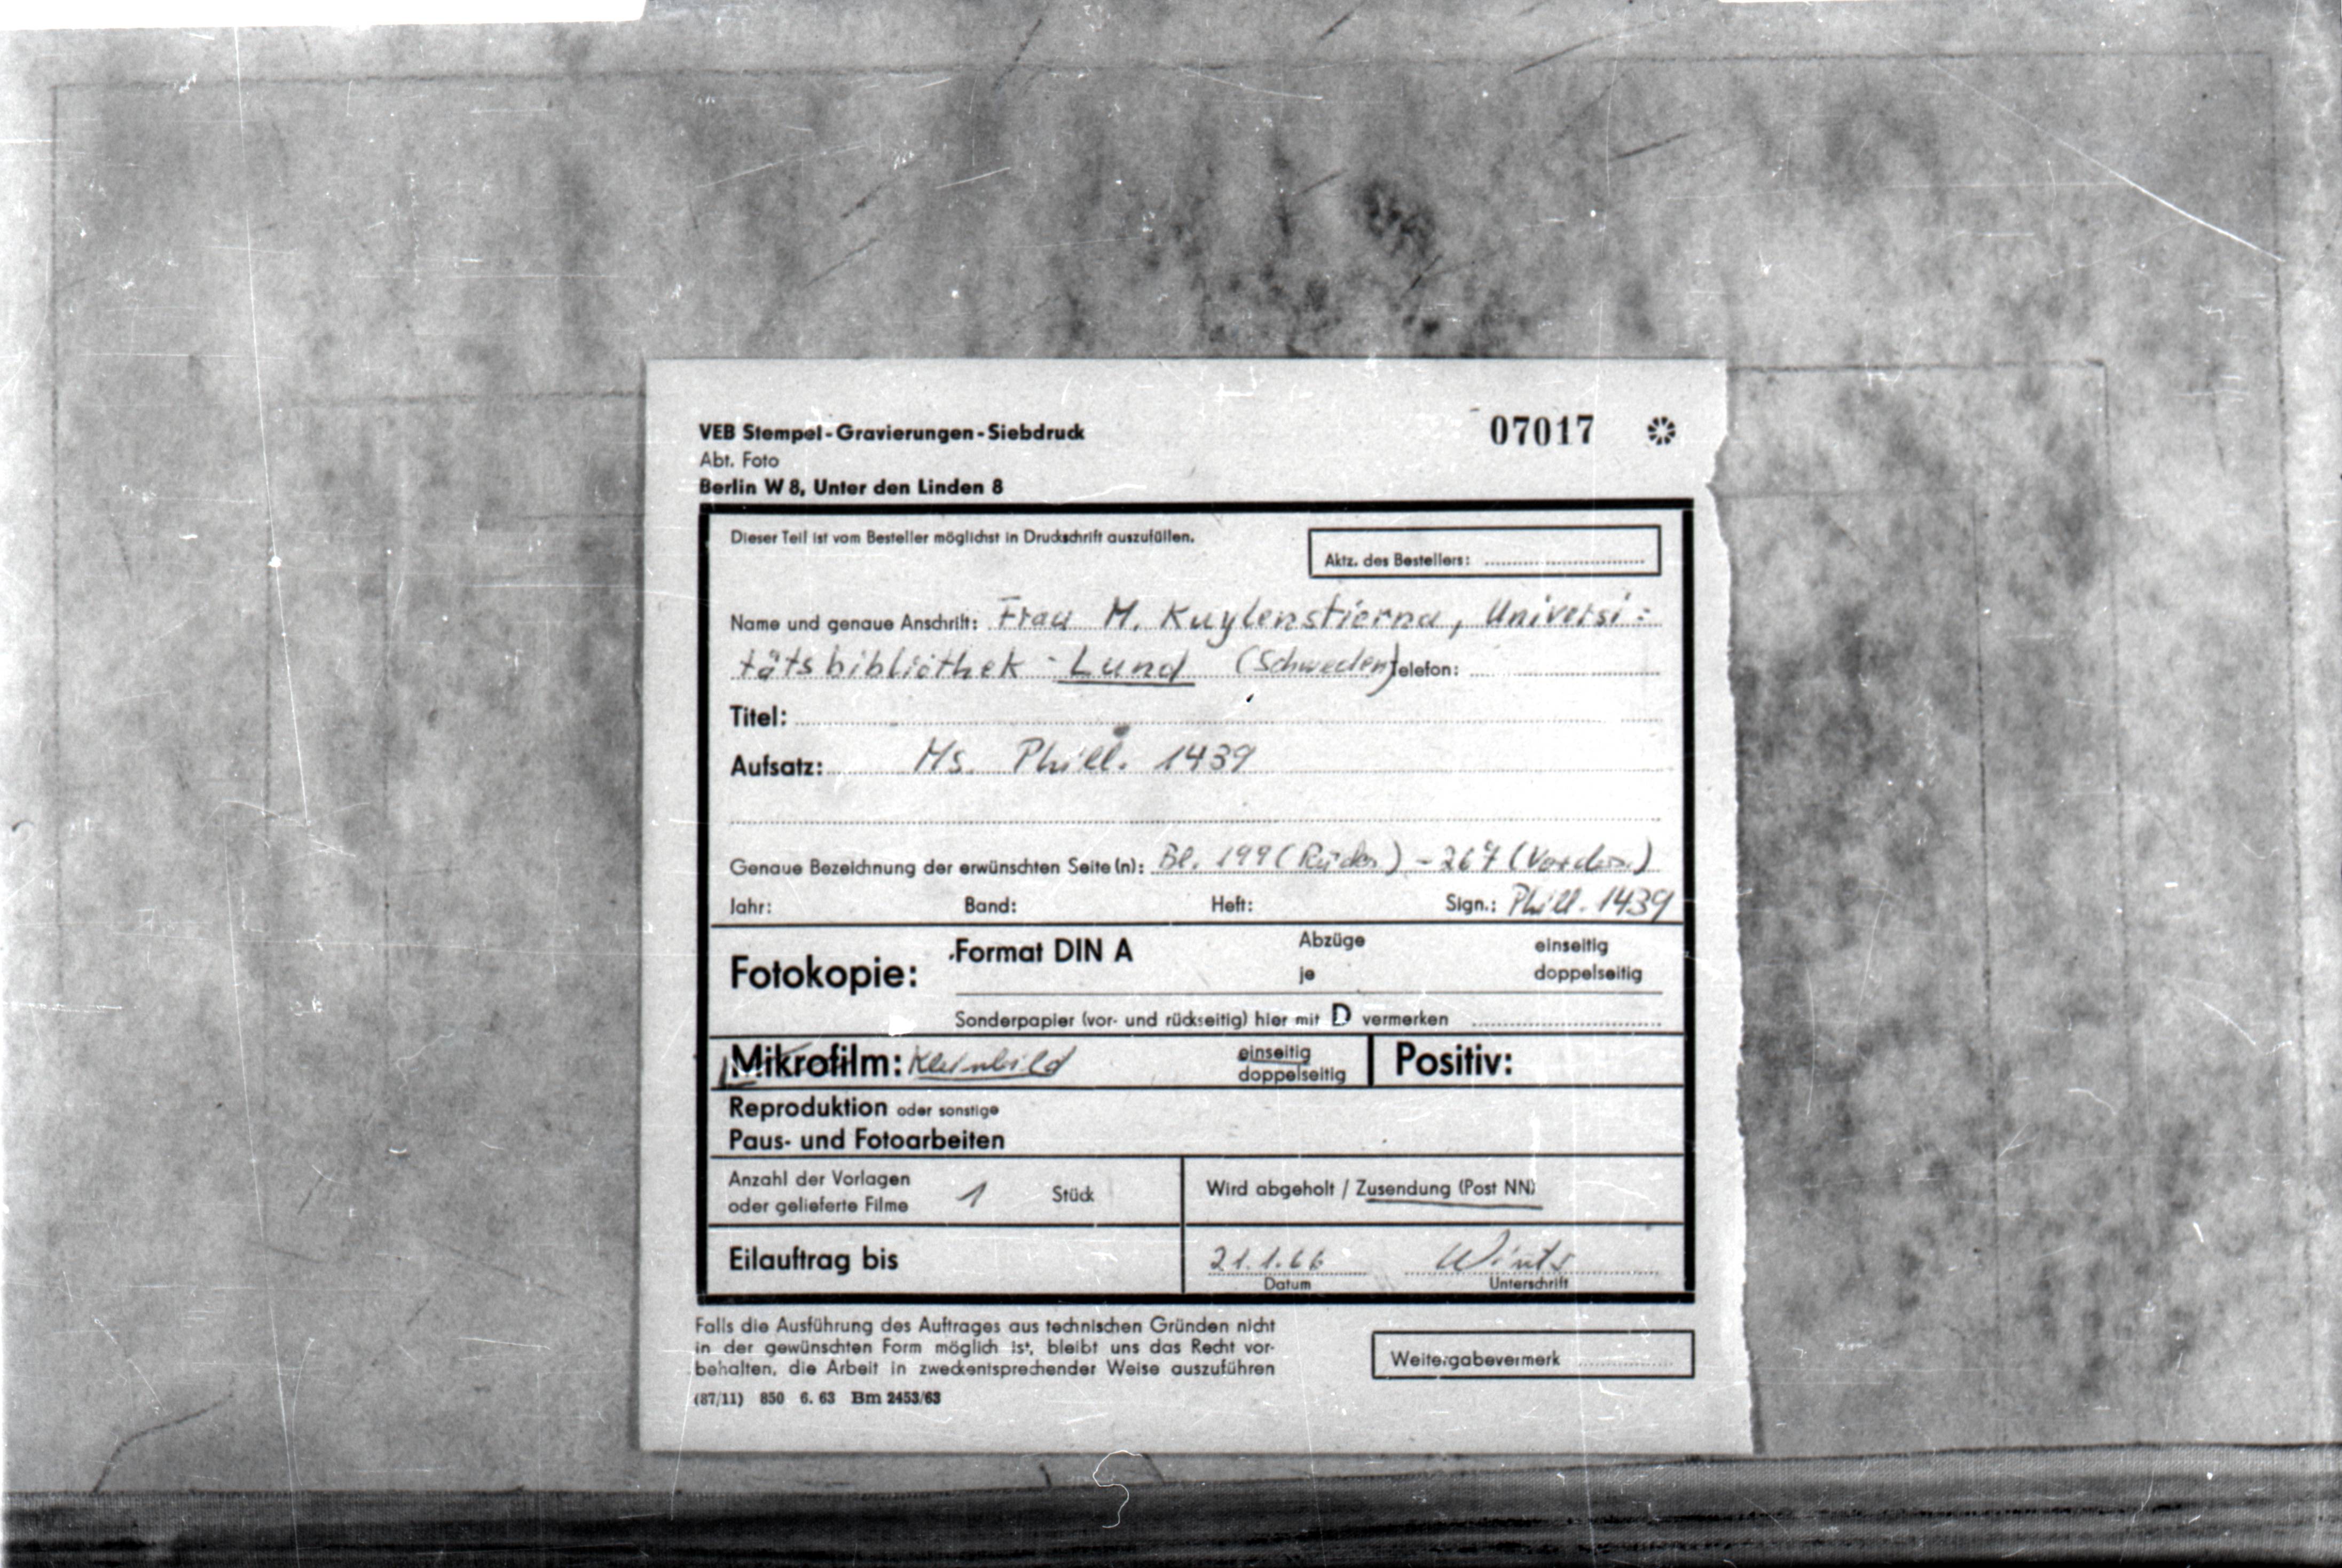 VEB Stempel-Gravierungen-Siebdruck
07017
Abt. Foto
Berlin W 8, Unter den Linden 8
Dieser Teil ist vom Besteller möglichst in Druckschrift auszufüllen.
Aktz. des Bestellers:
Name und genaue Anschrift: Frau M. Kuylenstierna, Universi=
tätsbibliothek - Lund (Schweden) Telefon:
Titel:
Aufsatz: Ms. Phill. 1439
Genaue Bezeichnung der erwünschten Seite(n): Bl. 199 (Rücks.) - 267 (Vorders.)
Jahr: Band: Heft: Sign.: Phill. 1439
Fotokopie: Format DIN A
Abzüge
je
einseitig
doppelseitig
Sonderpapier (vor- und rückseitig) hier mit D vermerken
Mikrofilm: Kleinbild
einseitig
doppelseitig
Positiv:
Reproduktion oder sonstige
Paus- und Fotoarbeiten
Anzahl der Vorlagen
oder gelieferte Filme 1 Stück
Wird abgeholt / Zusendung (Post NN)
Eilauftrag bis
21.1.66
Datum
Unterschrift
Falls die Ausführung des Auftrages aus technischen Gründen nicht
in der gewünschten Form möglich ist, bleibt uns das Recht vor-
behalten, die Arbeit in zweckentsprechender Weise auszuführen
Weitergabevermerk
(87/11) 850 6. 63 Bm 2453/63